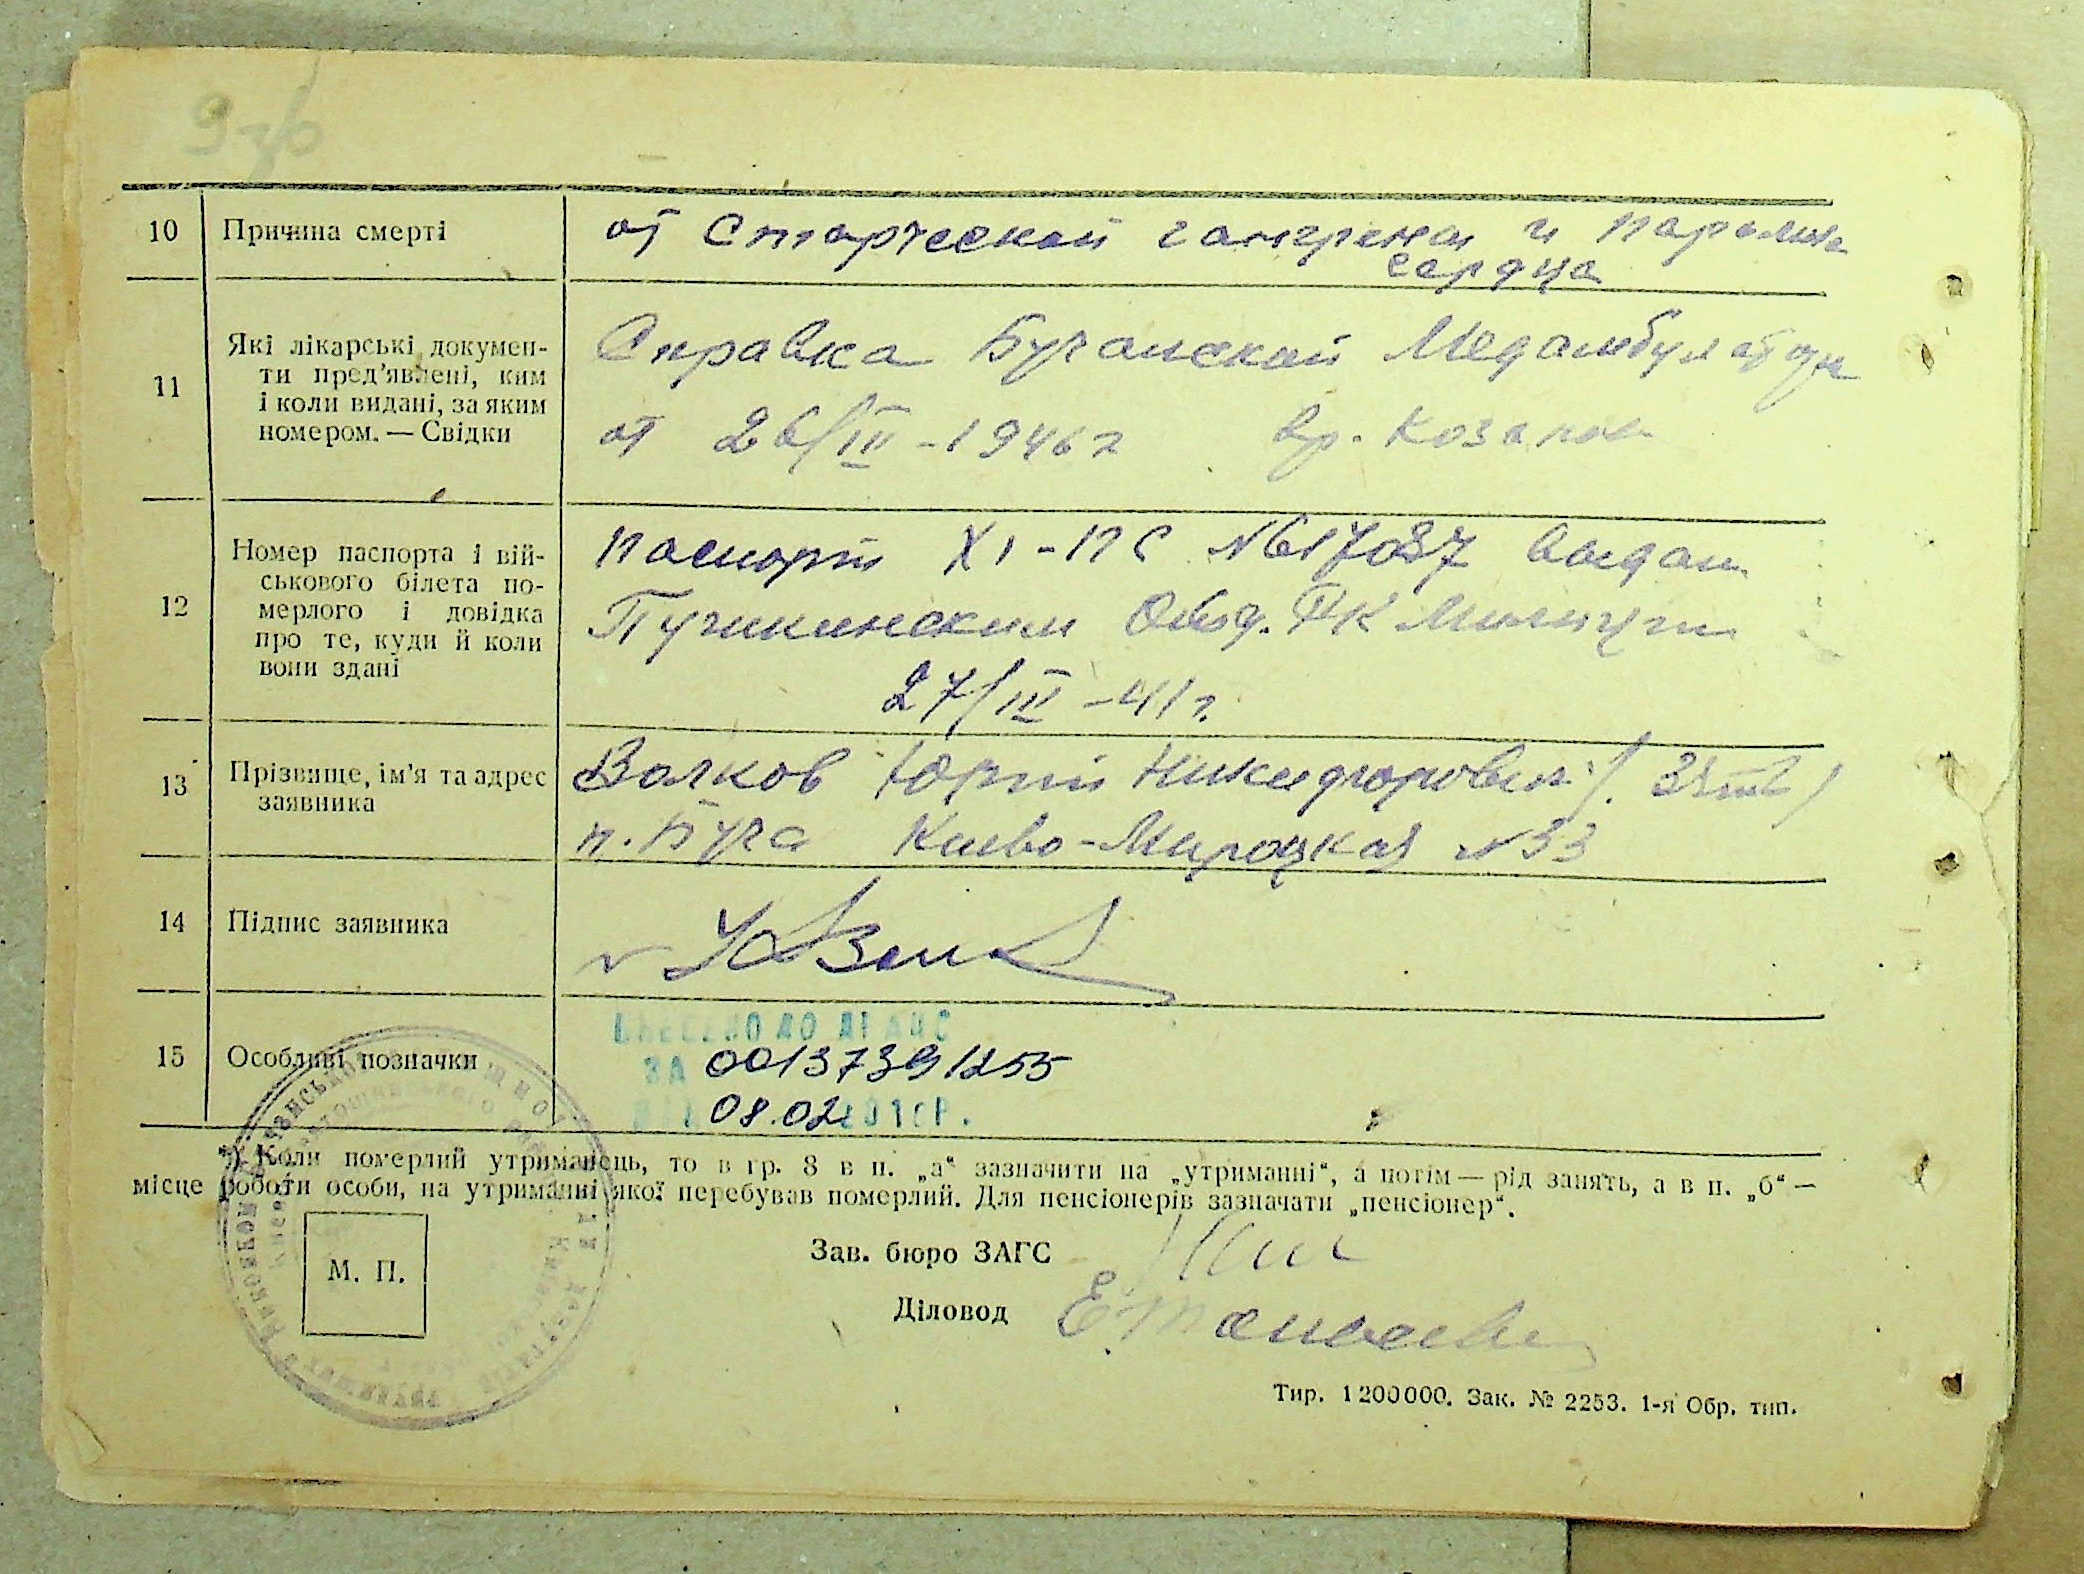 936
10 Причина смерті от Старческой гангрены и паралича
сердца
11 Які лікарські докумен-
ти пред'явлені, ким
і коли видані, за яким
номером. — Свідки
Справка Бучанской Медамбулатории
от 26/III - 1946 г вр.
12 Номер паспорта і вій-
ськового білета по-
мерлого і довідка
про те, куди й коли
вони здані
Паспорт XI-ПС №617037 выдан
РК Милиции
27/III - 41 г.
13 Прізвище, ім'я та адрес
заявника
Волков Юрий Никифорович
п. Буча Киево-Мироцкая №33
14 Підпис заявника
15 Особливі позначки
ВНЕСЕНО ДО ДРАЦС
ЗА 00137391255
08.02
*) Коли померлий утриманець, то в гр. 8 в п. „а“ зазначити на „утриманні“, а потім — рід занять, а в п. „б“ —
місце роботи особи, на утриманні якої перебував померлий. Для пенсіонерів зазначати „пенсіонер“.
М. П.
Зав. бюро ЗАГС
Діловод
Тир. 1200000. Зак. № 2253. 1-я Обр. тип.